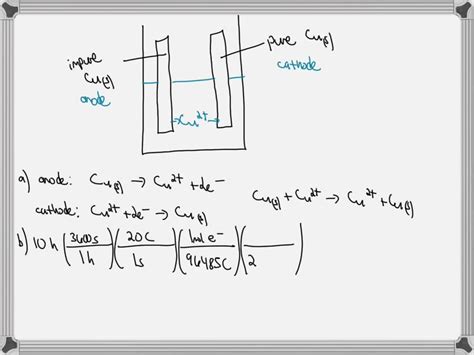 impure
Cu(s)
anode
pure Cu(s)
cathode
→Cu²⁺→
a) anode: Cu(s) → Cu²⁺ + 2e⁻
cathode: Cu²⁺ + 2e⁻ → Cu(s)
Cu(s) + Cu²⁺ → Cu²⁺ + Cu(s)
b) 10 h (3600s / 1h) (20C / 1s) (mol e⁻ / 96485C) ( / 2 )